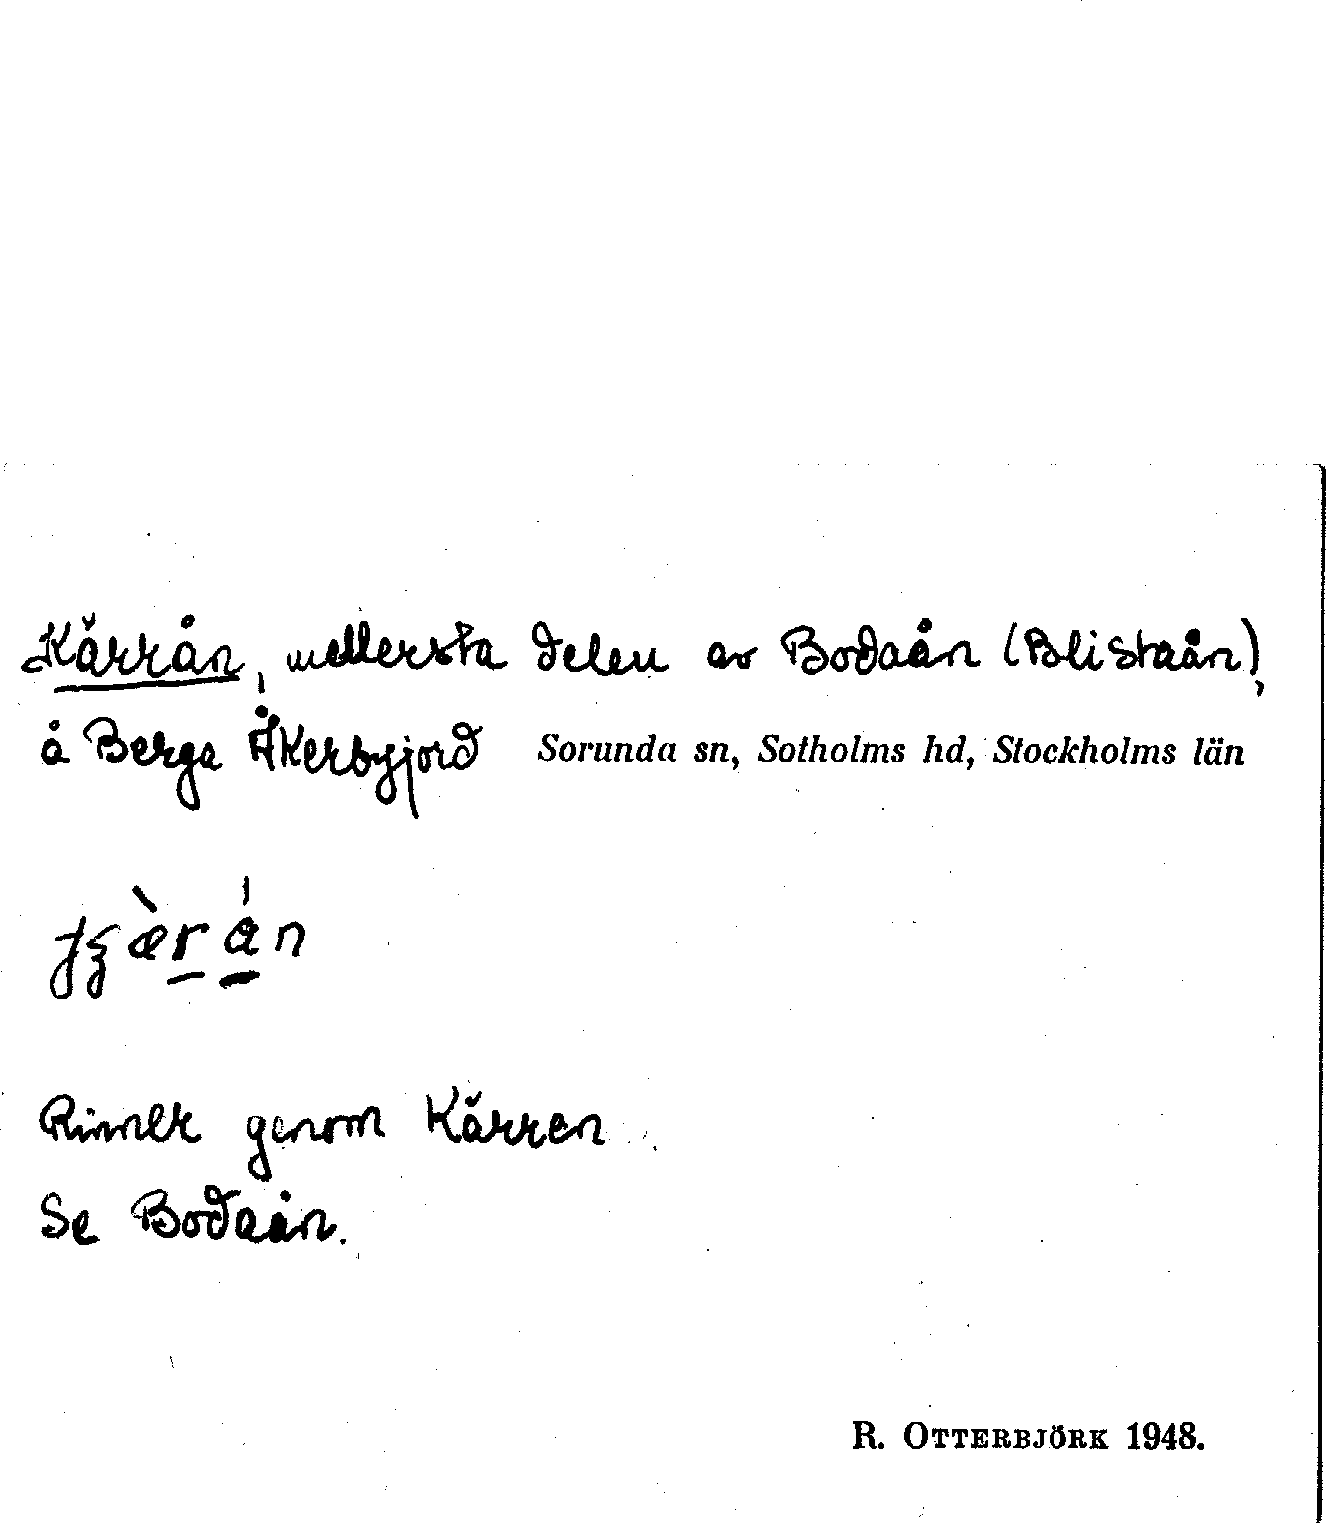 Kärrån, mellersta delen av Bodaån (Blistaån),
å Berga Åkerbyjord Sorunda sn, Sotholms hd, Stockholms län
Rinner genom Kärren
Se Bodaån.
R. OTTERBJÖRK 1948.